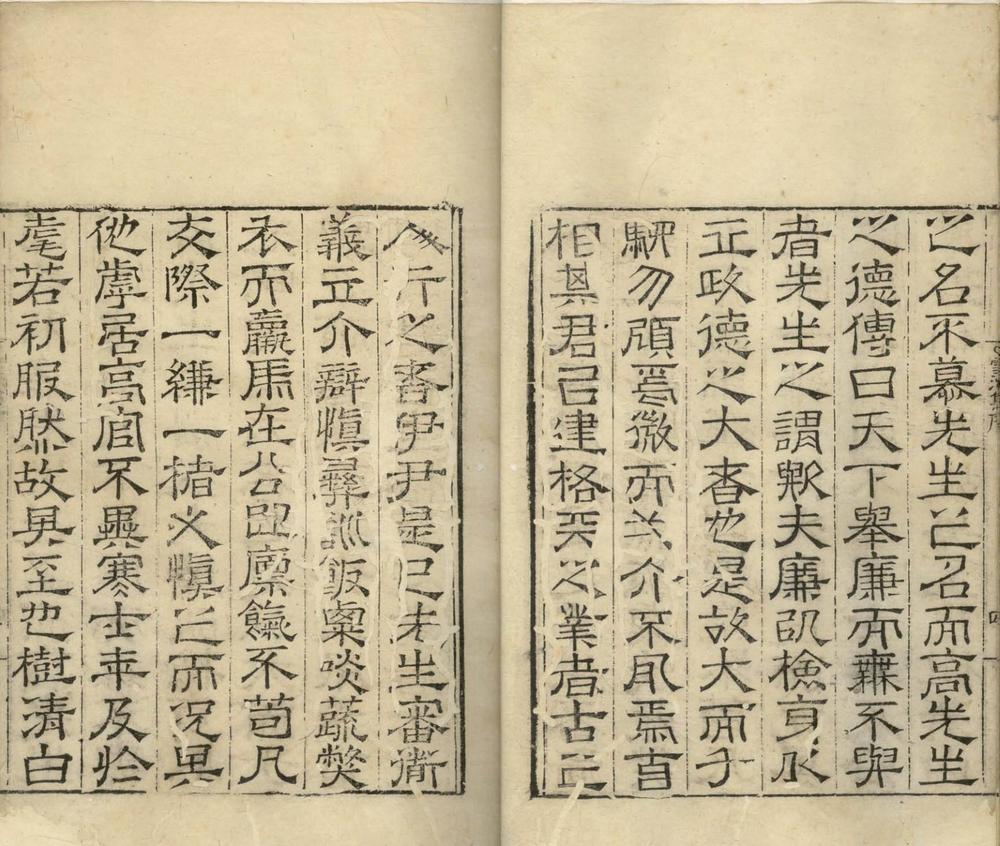 之名不慕先生之名而高先生
之德傳曰天下舉廉而廉不與
者先生之謂歟夫廉訊檢身
正政德之大者也是故大而千
駟勿顧焉微而一介不取焉自
相其君以建格天之業者古之
人行之者伊尹是已先生審衛
義立介辯慎彝訓飯粟啖蔬弊
衣而羸馬在公即廩餼不苟凡
交際一縑一楮必慎之而況其
他虖居高官不異寒士年及於
耄若初服然故其至也樹清白